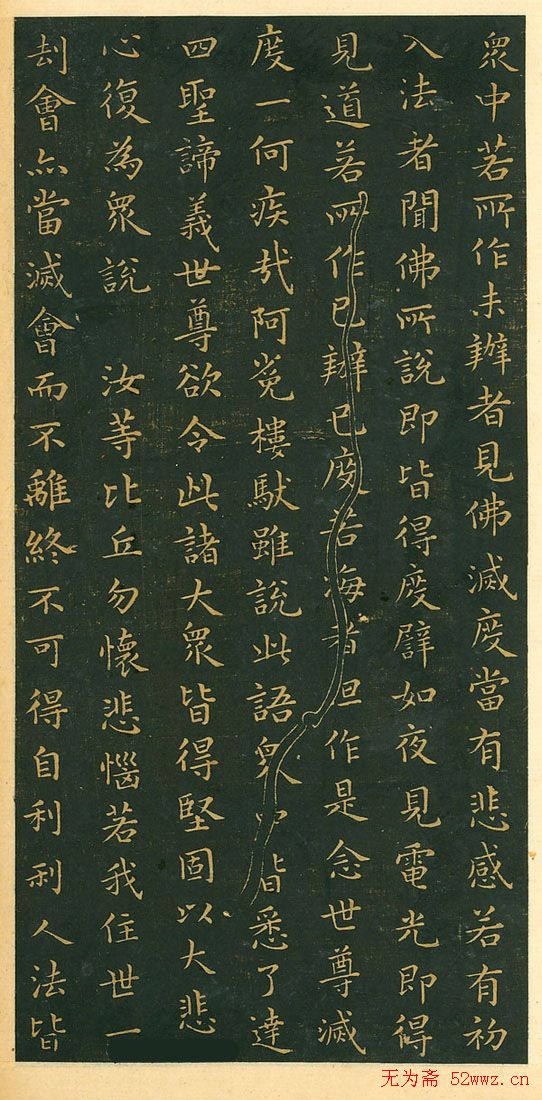 眾中若所作未辦者見佛滅度當有悲感若有初
入法者聞佛所說即皆得度譬如夜見電光即得
見道若所作已辦已度苦海者但作是念世尊滅
度一何疾哉阿㝹樓馱雖說此語眾中皆悉了達
四聖諦義世尊欲令此諸大眾皆得堅固以大悲
心復為眾說 汝等比丘勿懷悲惱若我住世一
劫會亦當滅會而不離終不可得自利利人法皆
无为斋 52wwz.cn